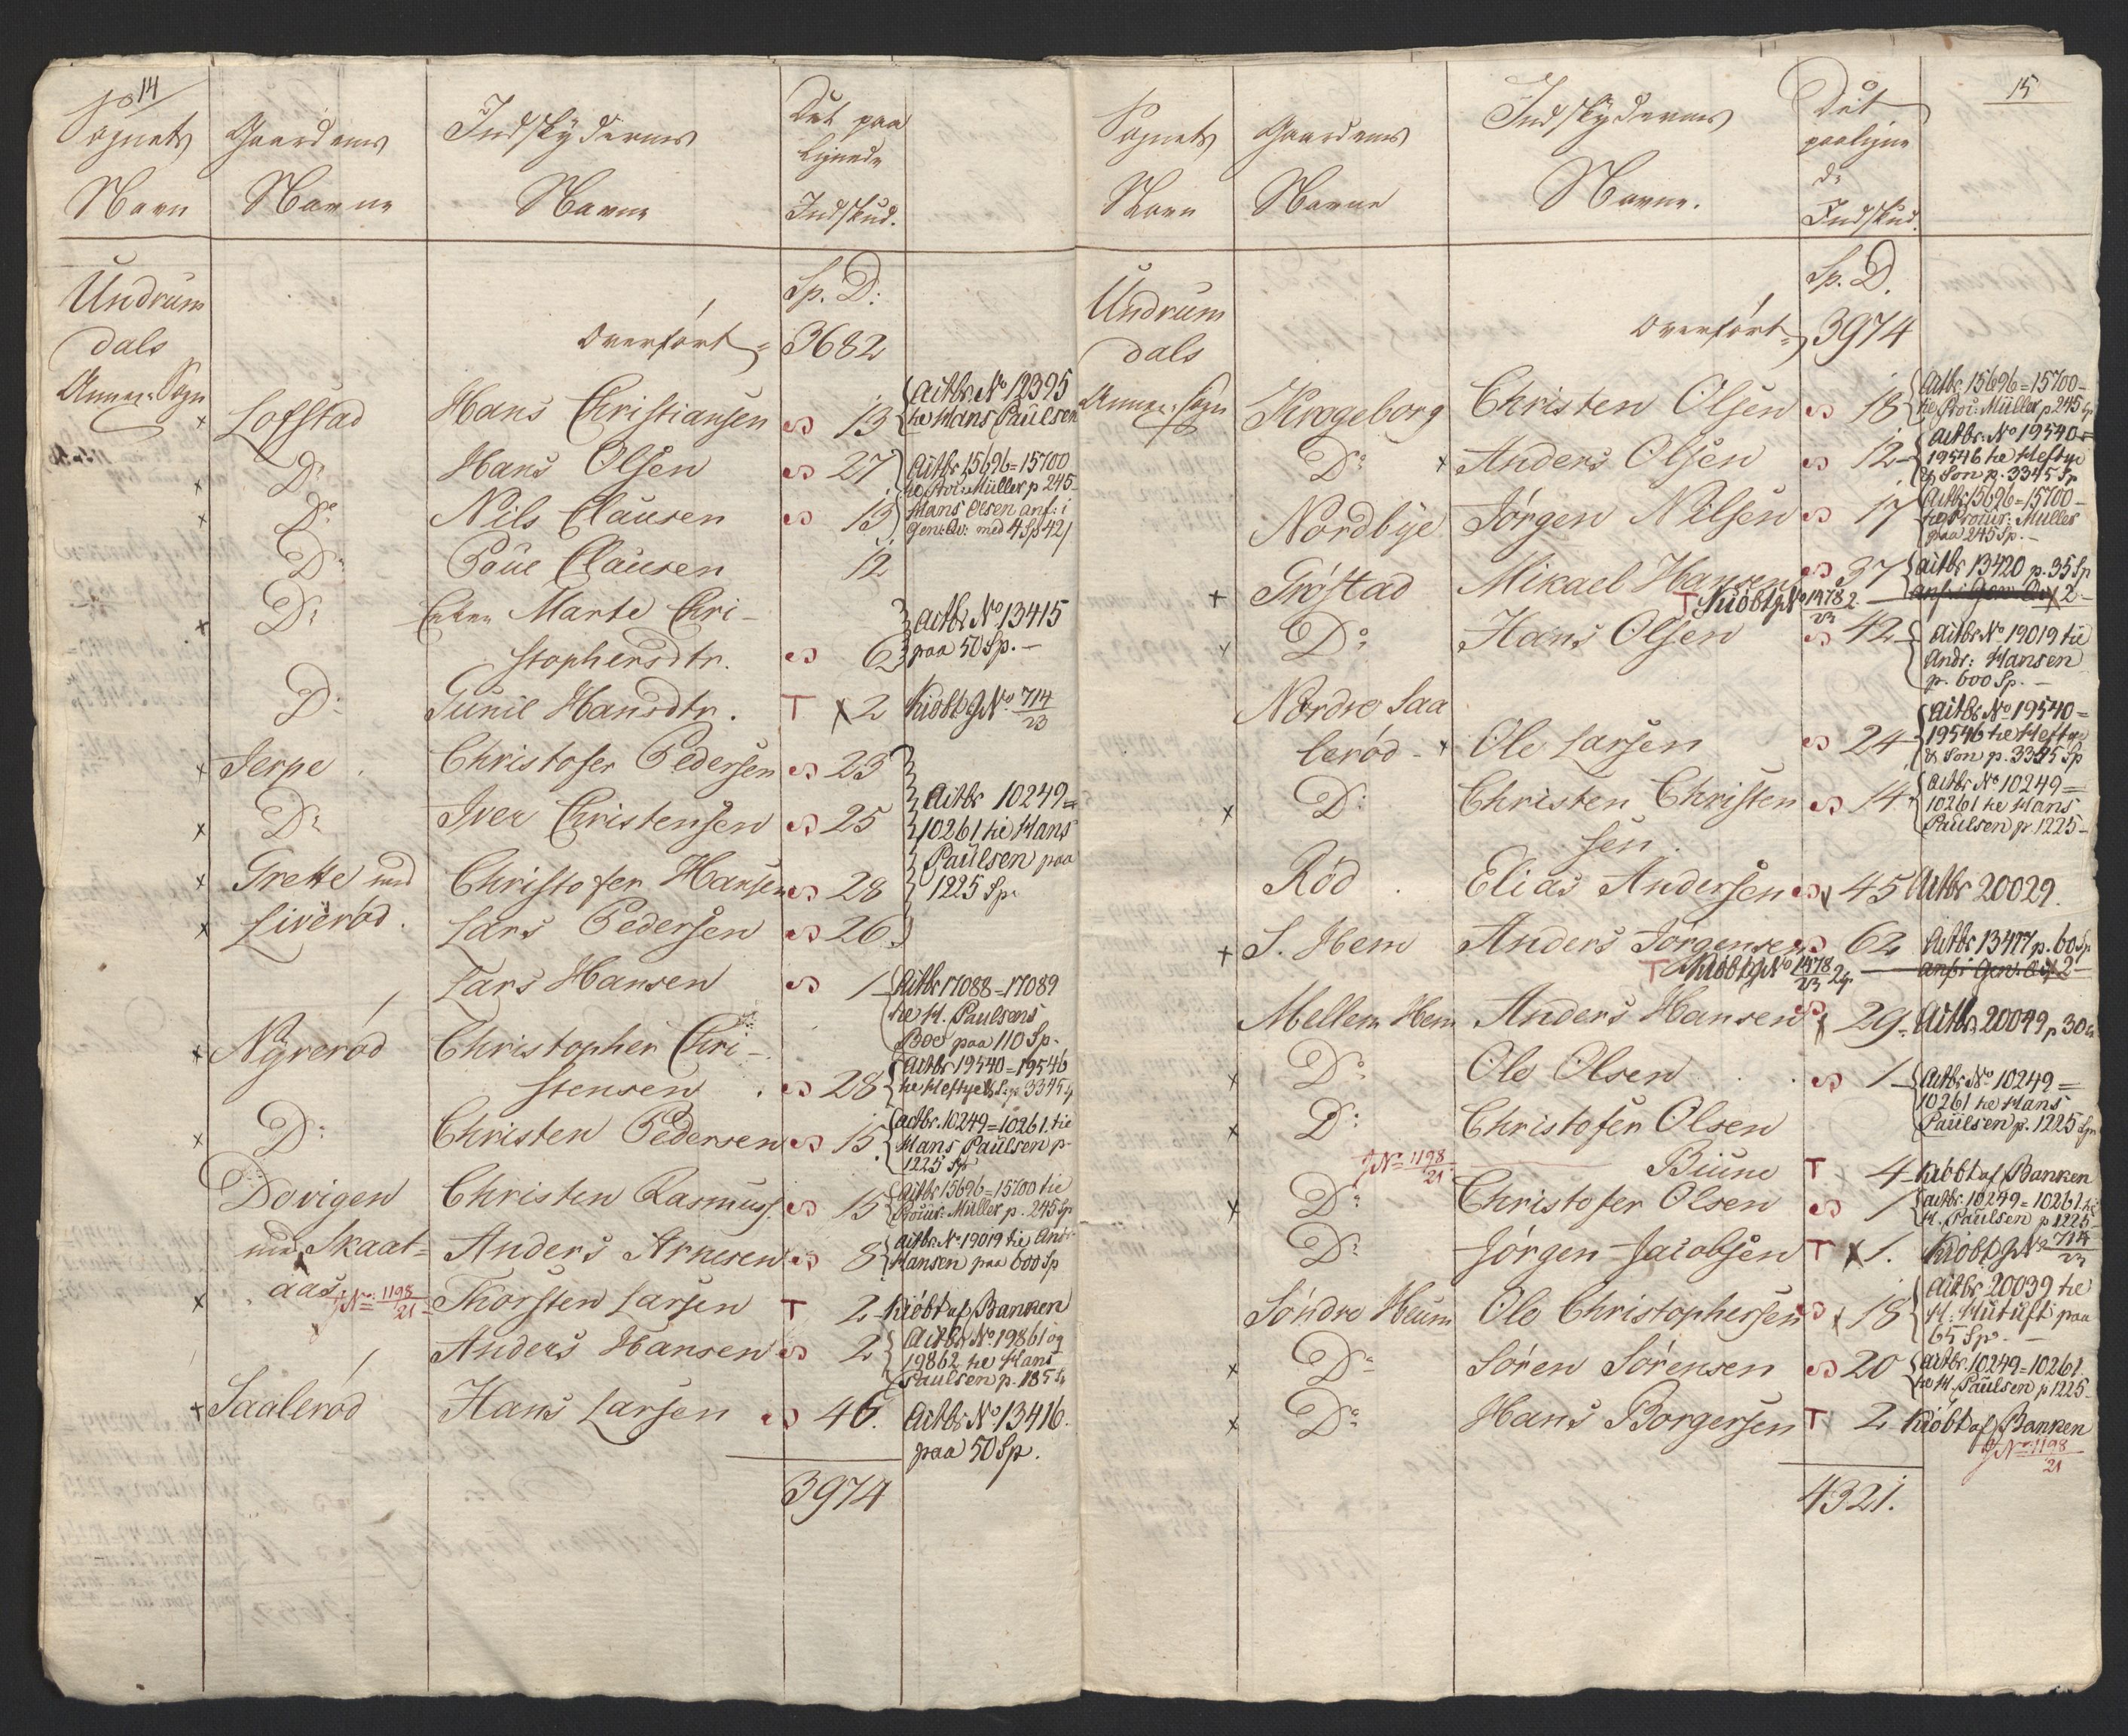 14
Sognets Navn
Gaardens Navne
Indskydernes Navne
Det paa Lignede Indskud.
Undrum
dals
Annex-Sogn
Sp. D:
Overført 3682
x Lofstad Hans Christiansen 13 {Actbr. No 12395
til Hans Paulsen
x D: Hans Olsen 27 Actbr 15696=15700
til Proc: Müller p 245-
x D: Nils Clausen 13 Hans Olsen anf: i
Gen: Qv: med 4 Sp 42
D: Poul Clausen 12
x D: Enken Marte Chri-
stophersdtr. 6 Actbr No 13415
paa 50 Sp. -
D: Gunil Hansdtr. T x 2 Kiøbt J No 714/23
x Jerpe . Christofer Pedersen 23
x D: Iver Christensen 25 Actbr 10249=
10261 til Hans
x Grette med Christofer Hansen 28 Paulsen paa
1225 Sp.
x Liverød. Lars Pedersen 26
Lars Hansen 1 Actbr 17088=17089
til H. Paulsens
Boe paa 110 Sp.
x Nyrerød Christopher Chri-
stensen . 28 {Actbr 19540=19546
til Heftye & S: p 3345 Sp
x D: Christen Pedersen 15. {actbr. 10249=10261. til
Hans Paulsen p.
1225 Sp
Dovigen Christen Rasmuss. 15 {Actbr 15696=15700 til
Procur: Müller p. 245 Sp
med Skaat= Anders Arnesen 8 {Actbr. No 19019 til Andr.
Hansen paa 600 Sp
x aas J No: 1198/21 Thorsten Larsen T 2 Kiøbt af Banken
Anders Hansen 2 {Actbr No. 19861 og
19862 til Hans
Paulsen p. 185 Sp
x Saalerød Hans Larsen 46. Actbr No. 13416.
paa 50 Sp.
3974
15
Sognets Navn
Gaardens Navne
Indskydernes Navne.
Det paaligne
de Indskud.
Undrum
dals
Annex: Sogn
Sp. D.
Overført 3974
Krogeborg Christen Olsen 18 {Actbr 15696=15700-
til Proc: Müller p 245 Sp
D: x Anders Olsen 12 {Actbr. No 19540=
19546 til Heftye
& Son p. 3345 Sp
Nordbye Jørgen Nilsen 17 {Actbr 15696=15700-
til Procur: Müller
paa 245 Sp. -
x Trøstad Mikael Hansen 37 {actbr 13420 p. 35 Sp
T Kiøbt J No 1478/23 2. anf: i Gen: Qv x 2-
x D: Hans Olsen 42 {Actbr No 19019 til
Andr: Hansen
p. 600 Sp. -
Nordre Saa
lerød - x Ole Larsen 24 {Actbr No 19540=
19546 til Heftye
& Son p. 3345 Sp
x D: Christen Christen
sen. 14 {Actbr No 10249=
10261 til Hans
Paulsen p. 1225-
Rød . Elias Andersen 45 Actbr 20029.
x S. Hem Anders Jørgensen 62 Actbr 13417 p. 60 Sp
T Kiøbt J No 1478/23 2 Sp anf: i Gen: Qv x 2-
Mellem Hem Anders Hansen 29 Actbr 20049 p 30
x D: Ole Olsen . . 1 {Actbr No 10249=
10261 til Hans
x D: Christofer Olsen Paulsen p. 1225 Sp
J No 1198/21 Biune T 4 Kiøbt af Banken
x D: Christofer Olsen 1 {actbr. 10249=10261. til
H. Paulsen p 1225-
D: Jørgen Jacobsen T x 1. Kiøbt J No 714/23
Søndre Heum Ole Christophersen x 18 {Actbr 20039 til
H: paa
65 Sp. -
x D: Søren Sørensen 20 {actbr. 10249=10261.
til H. Paulsen p 1225-
x D: Hans Borgersen T 2 Kiøbt af Banken
J No 1198/21
4321.